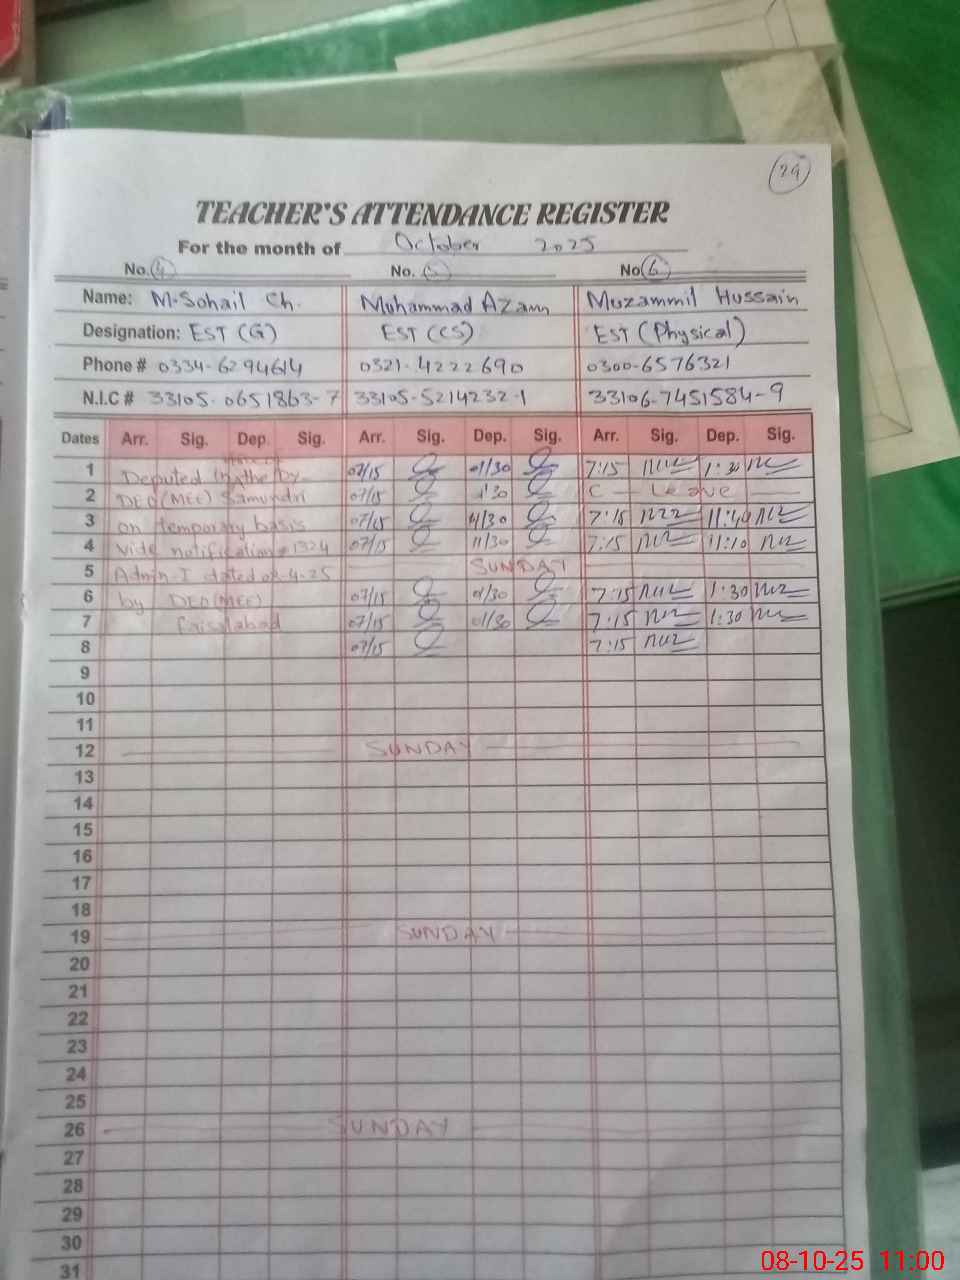 29
TEACHER'S ATTENDANCE REGISTER
For the month of October 2025
No. 4 No. 5 No 6
Name: M. Sohail Ch. Muhammad Azam Muzammil Hussain
Designation: EST (G) EST (CS) EST (Physical)
Phone # 0334-6294614 0321-4222690 0300-6576321
N.I.C # 33105-0651863-7 33105-5214232-1 33106-7451584-9
Dates Arr. Sig. Dep. Sig. Arr. Sig. Dep. Sig. Arr. Sig. Dep. Sig.
1 Deputed in the by 07/15 01/30 7:15 1:30
2 DEO (MEE) Samundri 07/15 1:30 C - Leave
3 on temporary basis 07/15 7:15 11:40
4 vide notification # 1324 07/15 11/30 7:15 11:10
5 Admn-I dated 02-4-25 SUNDAY
6 by DEO (MEE) 07/15 01/30 7:15 1:30
7 Faisalabad 07/15 01/30 7:15 1:30
8 07/15 7:15
9
10
11
12 SUNDAY
13
14
15
16
17
18
19 SUNDAY
20
21
22
23
24
25
26 SUNDAY
27
28
29
30
31
08-10-25 11:00